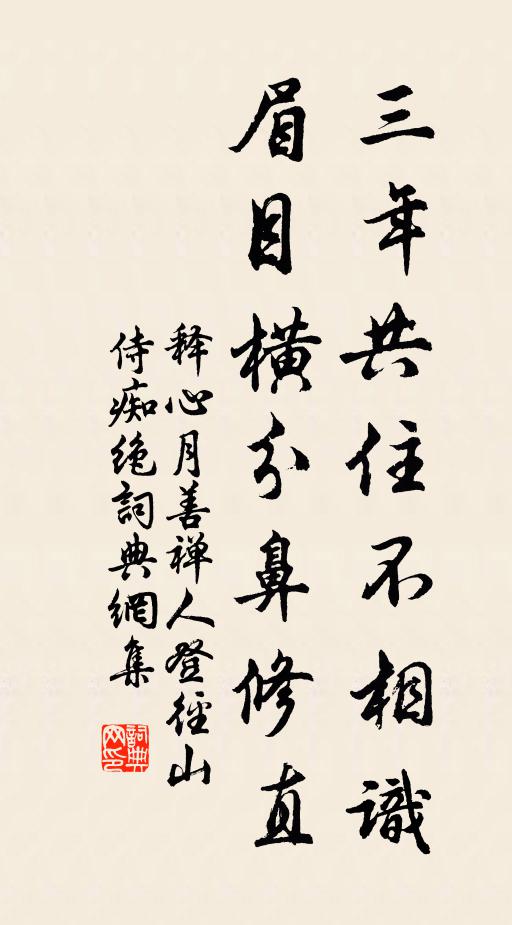 三年共住不相識
眉目橫分鼻修直
释心月善禅人登径山
侍痴绝詞典網集
詞典网印